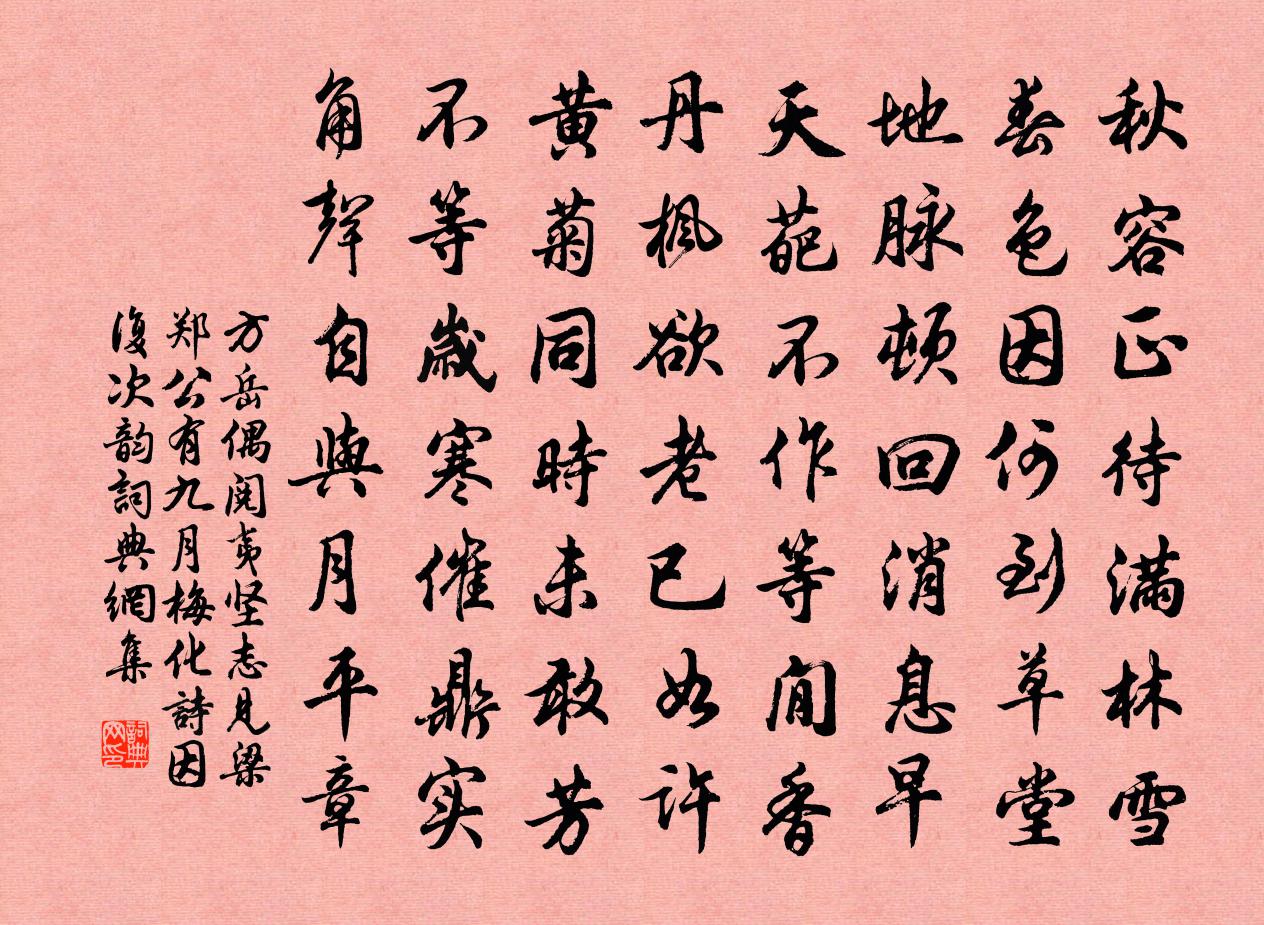 秋容正待满林雪
春色因何到草堂
地脉頓回消息早
天葩不作等閒香
丹楓欲老已如许
黄菊同時未敢芳
不等歲寒催鼎实
角聲自與月平章
方岳偶阅夷坚志見梁
郑公有九月梅花詩因
復次韵詞典網集
詞典网印